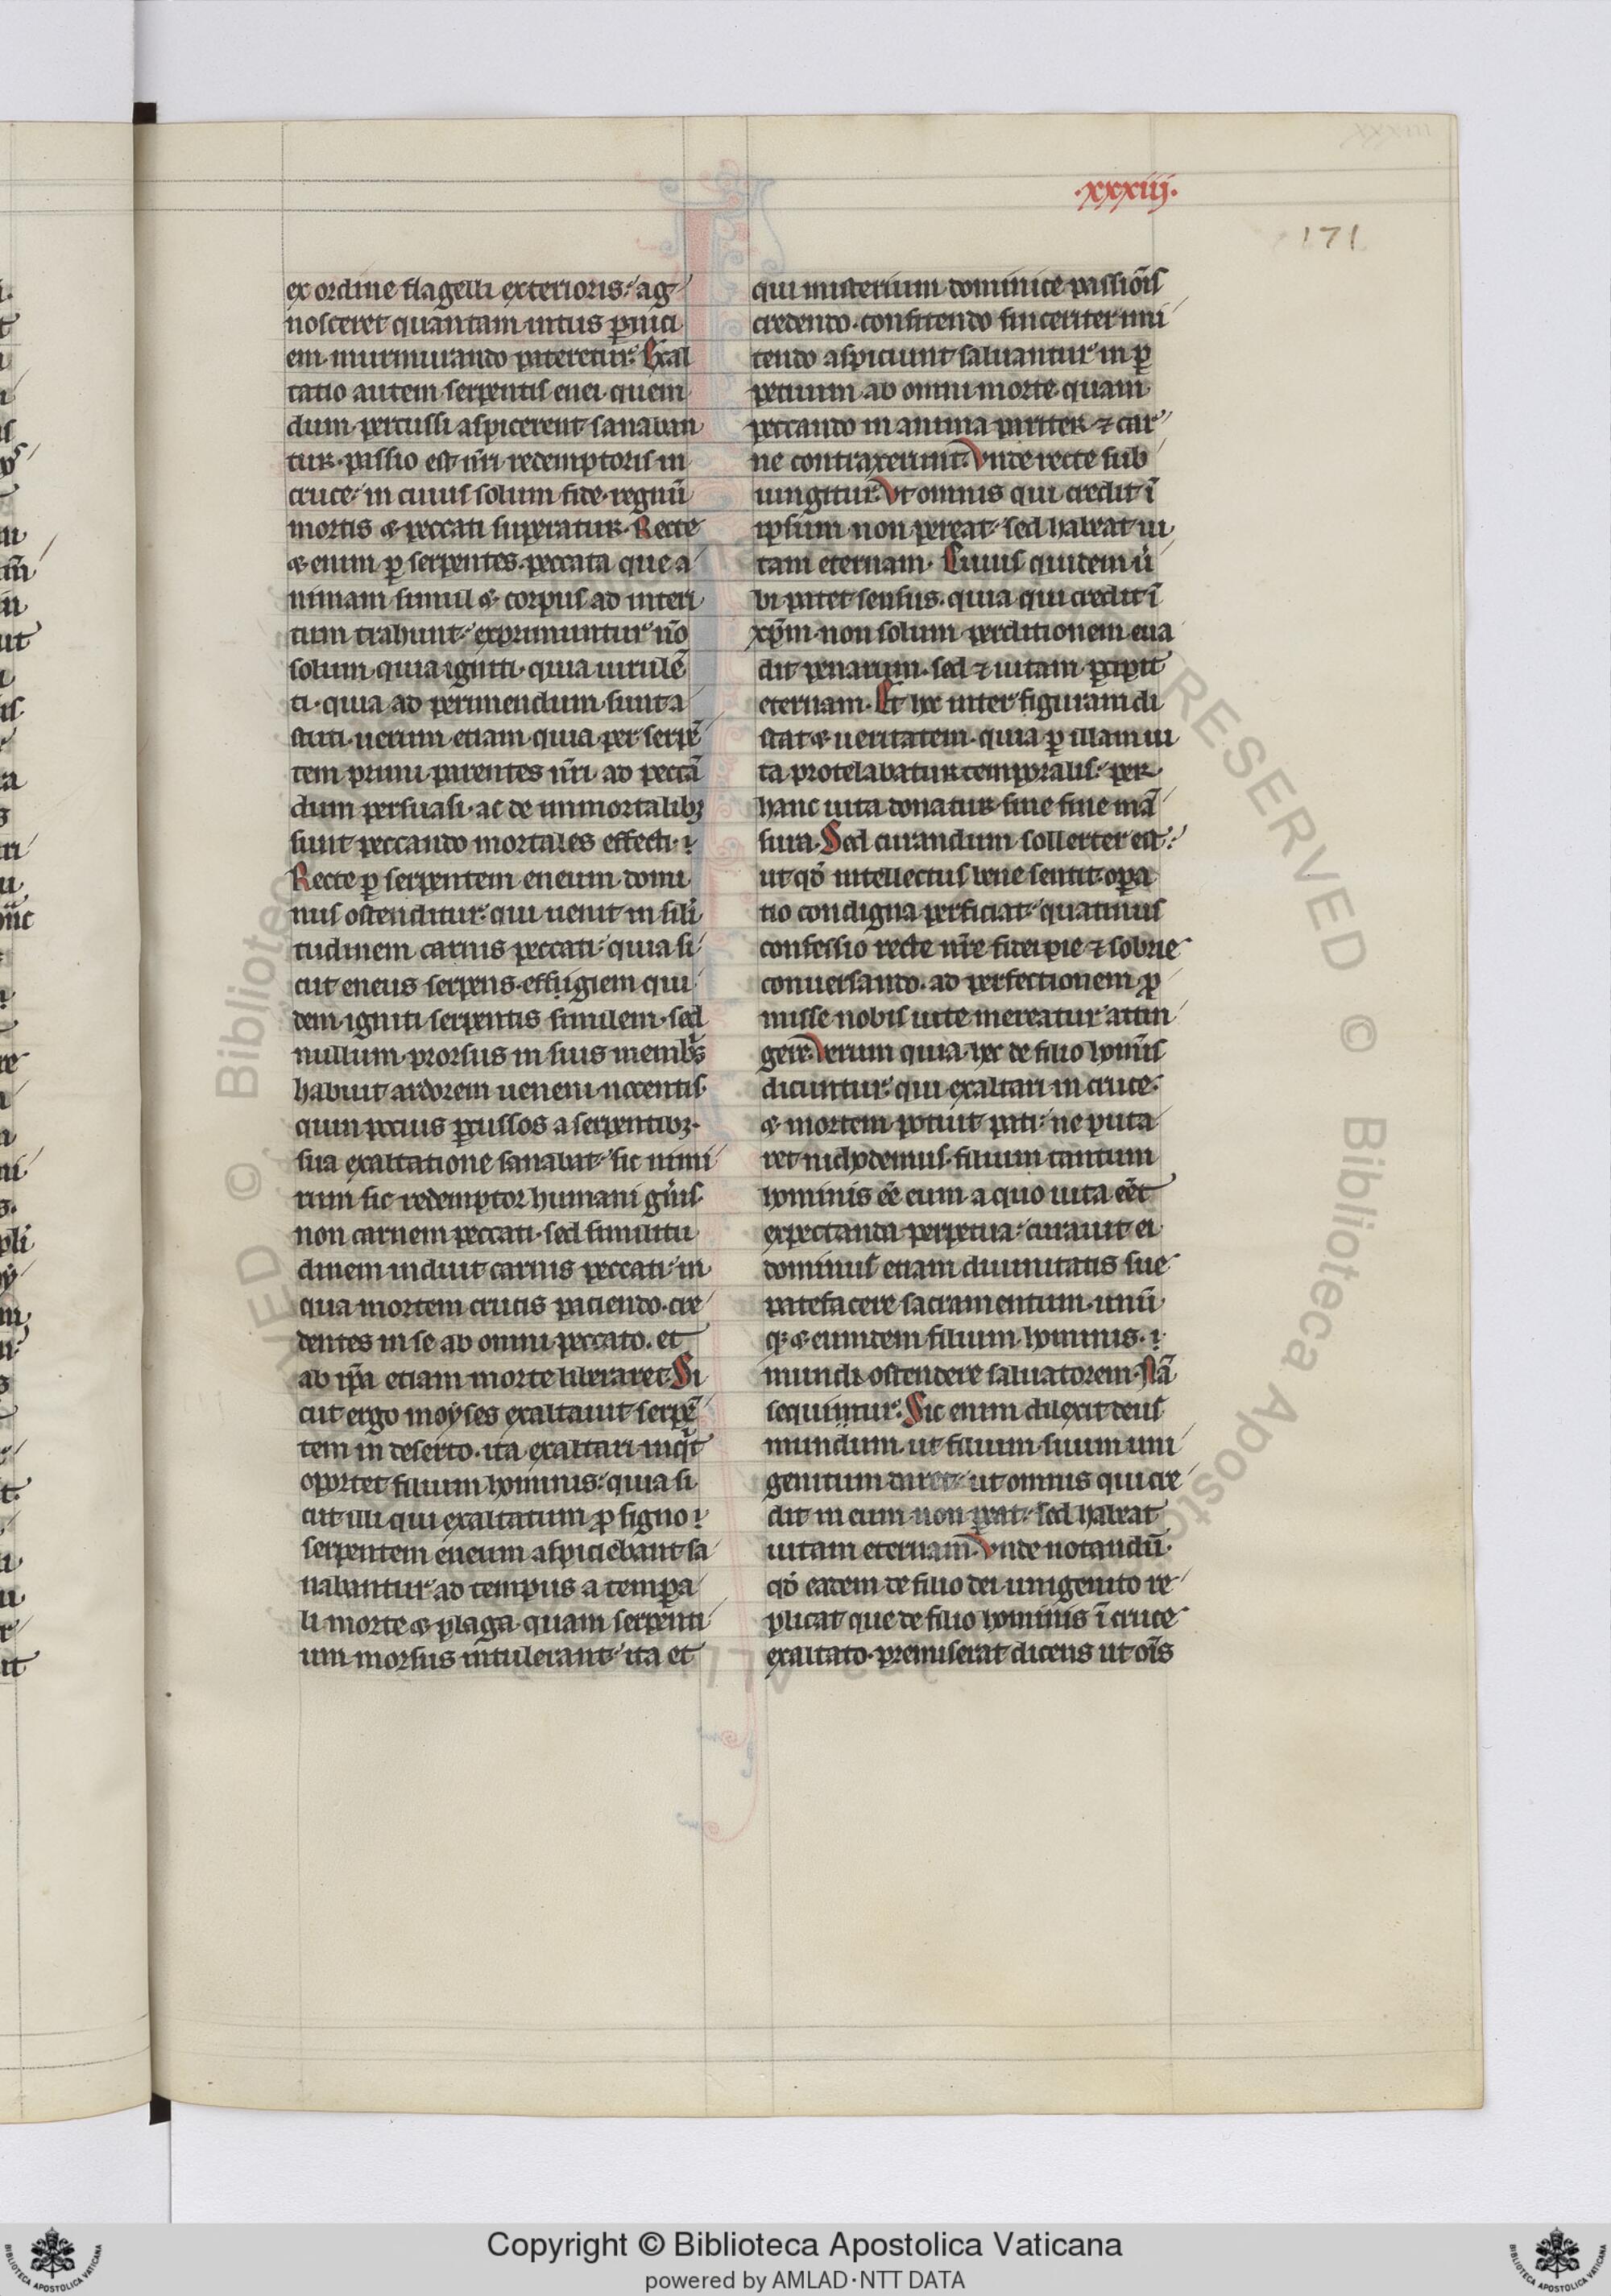 .xxxiij.
171
ex ordine flagelli exterioris. ag
nosceret quantam intus p̲nici
em murmurando pateretur. Exal
tatio autem serpentis enei quem
dum percussi aspicerent sanaban
tur. passio est nr̄i redemptoris in
cruce. in cuius solum fide regnū
mortis & peccati superatur. Recte
& enim p̲ serpentes peccata que a
nimam simul & corpus ad interi
tum trahunt. exprimuntur nō
solum quia igniti. quia uirulē
ti. quia ad perimendum sunt a
stuti. uerum etiam quia per serpē
tem primi parentes nr̄i ad peccā
dum persuasi. ac de immortalibꝫ
sunt peccando mortales effecti.
Recte p̲ serpentem eneum domi
nus ostenditur. qui uenit in sili
tudinem carnis peccati. quia si
cut eneus serpens effigiem qui
dem igniti serpentis similem. sed
nullum prorsus in suis membris
habuit ardorem ueneni nocentis.
quin pocius p̲cussos a serpentibꝫ.
sua exaltatione sanabat. sic nimi
rum sic redemptor humani gn̄is
non carnem peccati. sed similitu
dinem induit carnis peccati. in
qua mortem crucis paciendo. cre
dentes in se ab omni peccato. et
ab ip̄a etiam morte liberaret. Si
cut ergo moyses exaltauit serpē
tem in deserto. ita exaltari inqͥt
oportet filium hominis. quia si
cut illi qui exaltatum ꝓ signo
serpentem eneum aspiciebant sa
nabantur ad tempus a tempora
li morte & plaga. quam serpenti
um morsus intulerant. ita et
qui misterium dominice passiōis
credendo. confitendo sinceriter imi
tando aspiciunt saluantur in p̲
petuum ab omni morte. quam
peccando in anima pariter ⁊ car
ne contraxerunt. Vnde recte sub
iungitur. Vt omnis qui credit ī
ipsum non pereat. sed habeat ui
tam eternam. Huius quidem u̾
bi patet sensus. quia qui credit ī
xp̄m non solum perditionem eua
dit penarum. sed ⁊ uitam p̲cipit
eternam. Et hec inter figuram di
stat & ueritatem. quia p̲ illam ui
ta protelabatur temporalis. per
hanc uita donatur sine fine mā
sura. Sed curandum sollerter est.
ut qđ intellectus bene sentit. opa
tio condigna perficiat. quatinus
confessio recte nr̄e fidei pie ⁊ sobrie
conuersando. ad perfectionem ꝓ
misse nobis uite mereatur attin
gere. Verum quia hec de filio homīs
dicuntur. qui exaltari in cruce.
& mortem potuit pati. ne puta
ret nichodemus. filium tantum
hominis eē eum a quo uita eēt
expectanda perpetua. curauit ei
dominus etiam diuinitatis sue
patefacere sacramentum. unū
qꝫ & eumdem filium hominis.
mundi ostendere saluatorem. Nā
sequitur. Sic enim dilexit deus
mundum. ut filium suum uni
genitum daret. ut omnis qui cre
dit in eum non p̲eat. sed habeat
uitam eternam. Vnde notandū.
qđ eadem de filio dei unigenito re
plicat que de filio hominis ī cruce
exaltato. premiserat dicens ut oīs
Copyright © Biblioteca Apostolica Vaticana
powered by AMLAD·NTT DATA